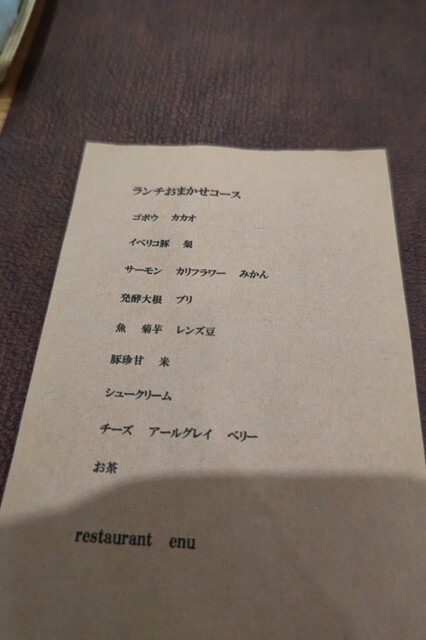 ランチおまかせコース
ゴボウ カカオ
イベリコ豚 梨
サーモン カリフラワー みかん
発酵大根 ブリ
魚 菊芋 レンズ豆
豚珍甘 米
シュークリーム
チーズ アールグレイ ベリー
お茶
restaurant enu